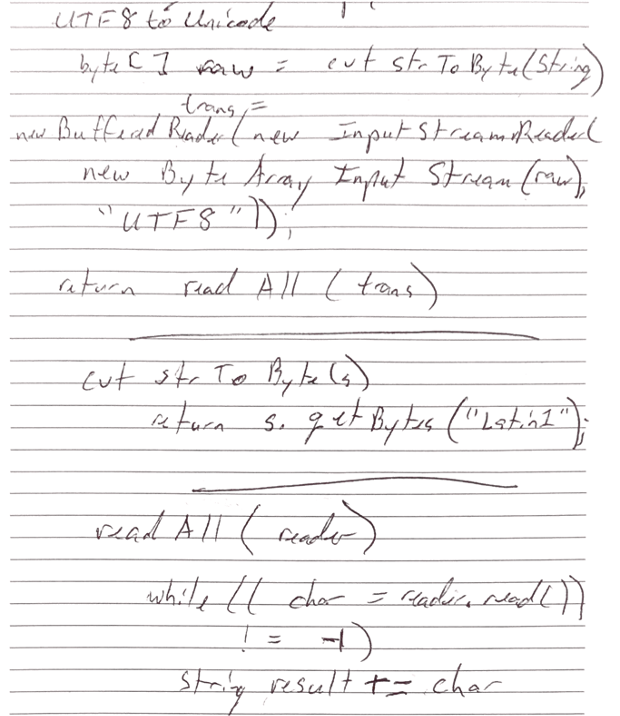 UTF8 to Unicode
byte[] raw = cvt strToByte(String)
trans =
new BufferedReader(new InputStreamReader(
new Byte Array Input Stream (raw),
"UTF8"));
return read All (trans)
cvt str To Byte(s)
return s.getBytes("Latin1");
read All (reader)
while (( char = reader.read())
!= -1)
string result += char